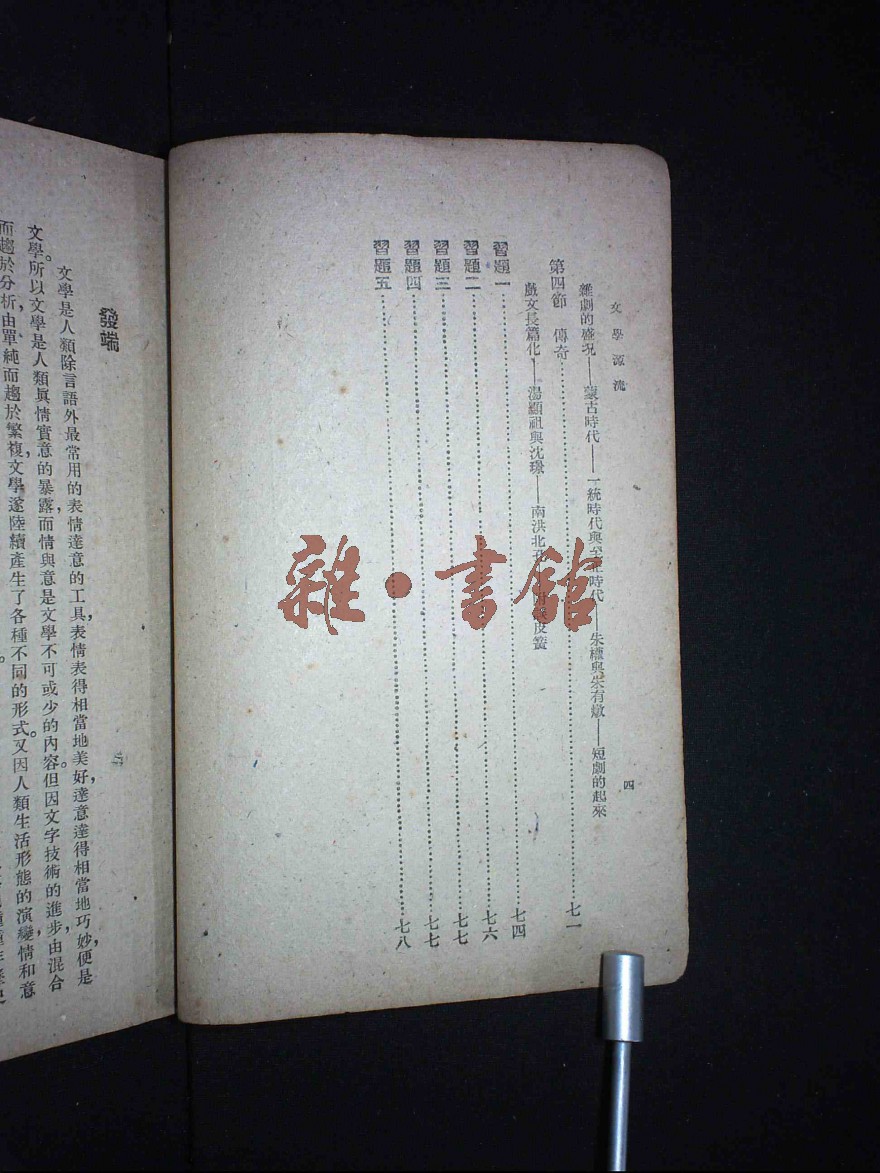 文學源流
四
雜劇的盛況——蒙古時代——一統時代與至 時代——朱權與朱有燉——短劇的起來
第四節 傳奇……七一
戲文長篇化——湯顯祖與沈璟——南洪北孔 皮簧
習題一……七四
習題二……七六
習題三……七七
習題四……七七
習題五……七八
雜·書館
發端
文學是人類除言語外最常用的表情達意的工具，表情表得相當地美好，達意達得相當地巧妙，便是
文學。所以文學是人類眞情實意的暴露，而情與意是文學不可或少的內容。但因文字技術的進步，由混合
而趨於分析，由單純而趨於繁複，文學遂陸續產生了各種不同的形式。又因人類生活形態的演變，情和意